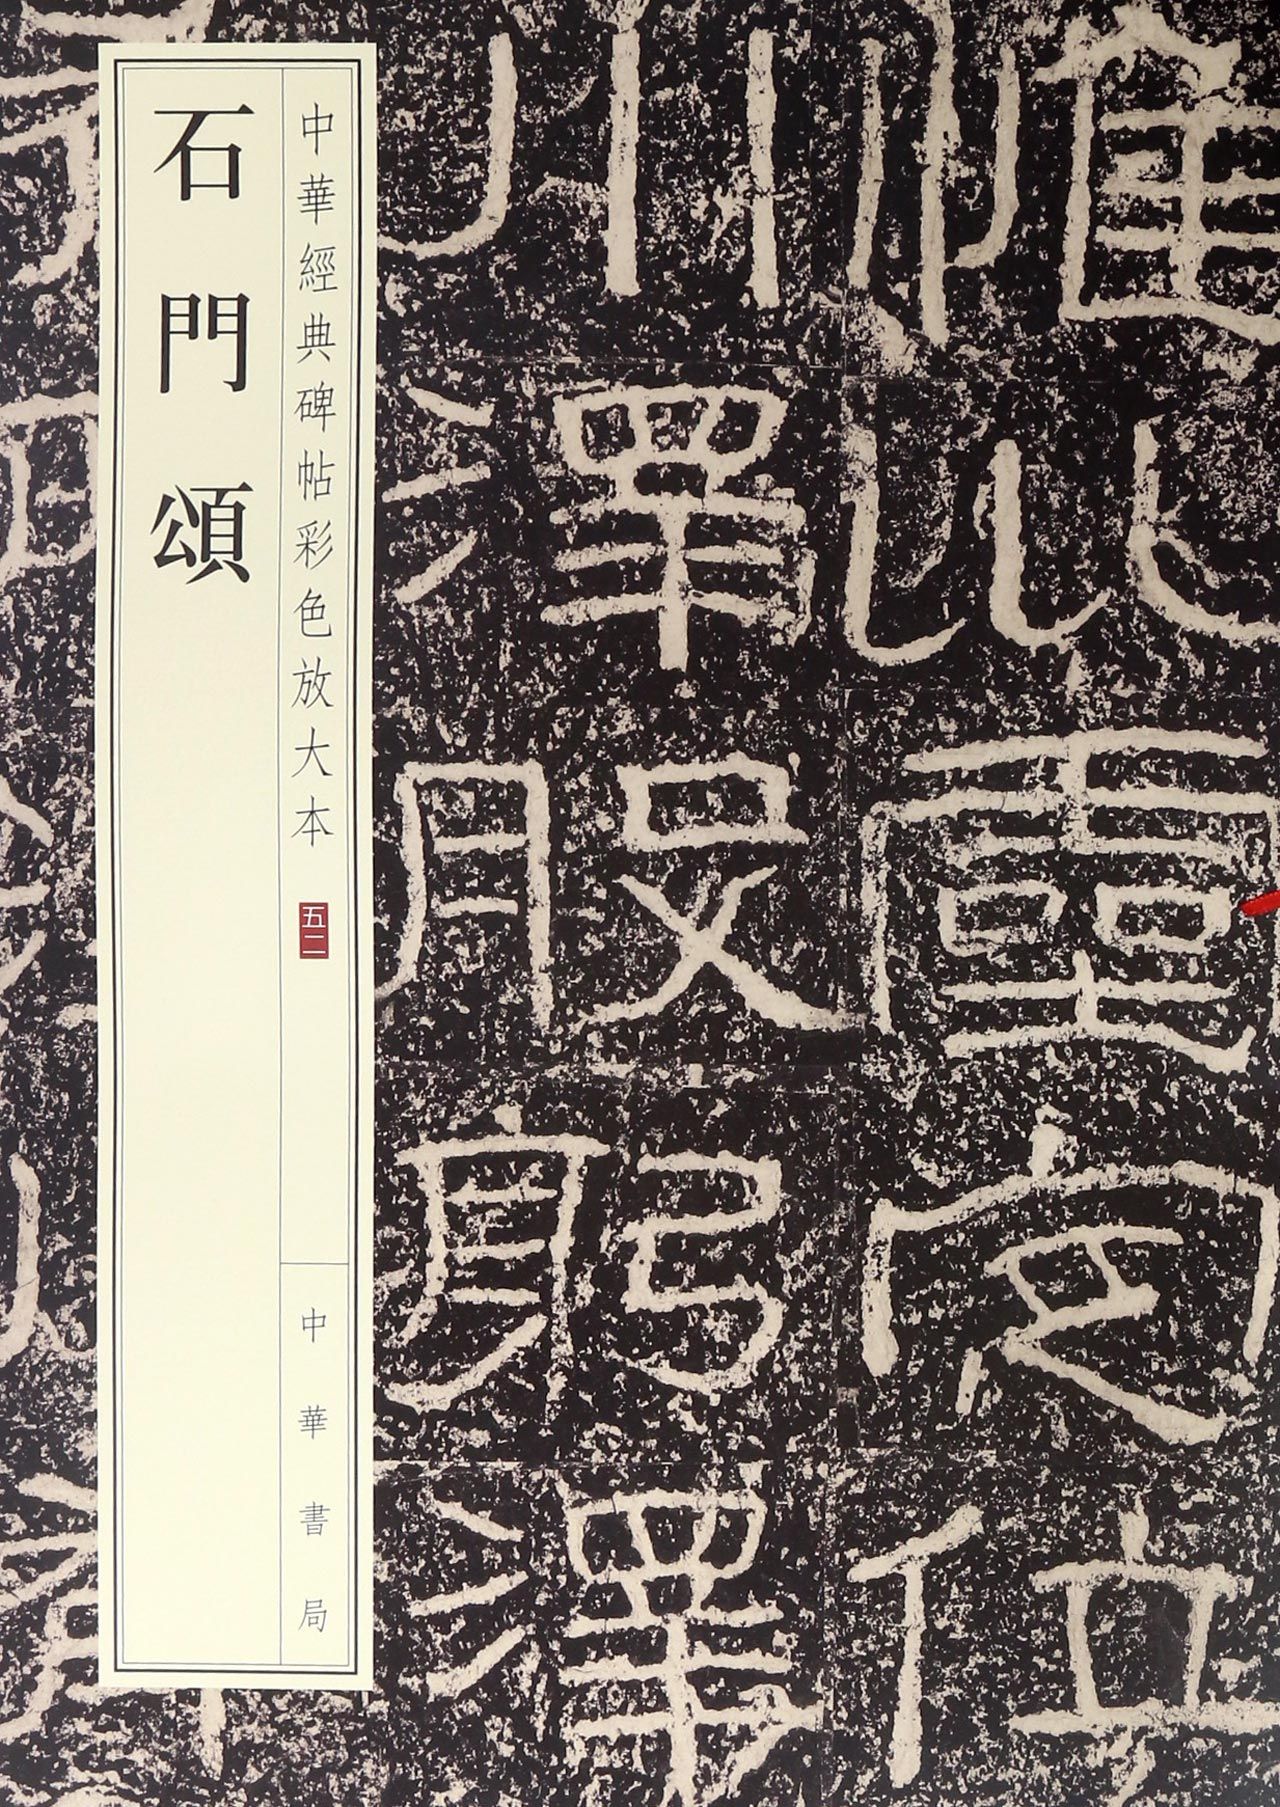 惟坤靈定位
川澤股躬澤
中華經典碑帖彩色放大本 五二
中華書局
石門頌